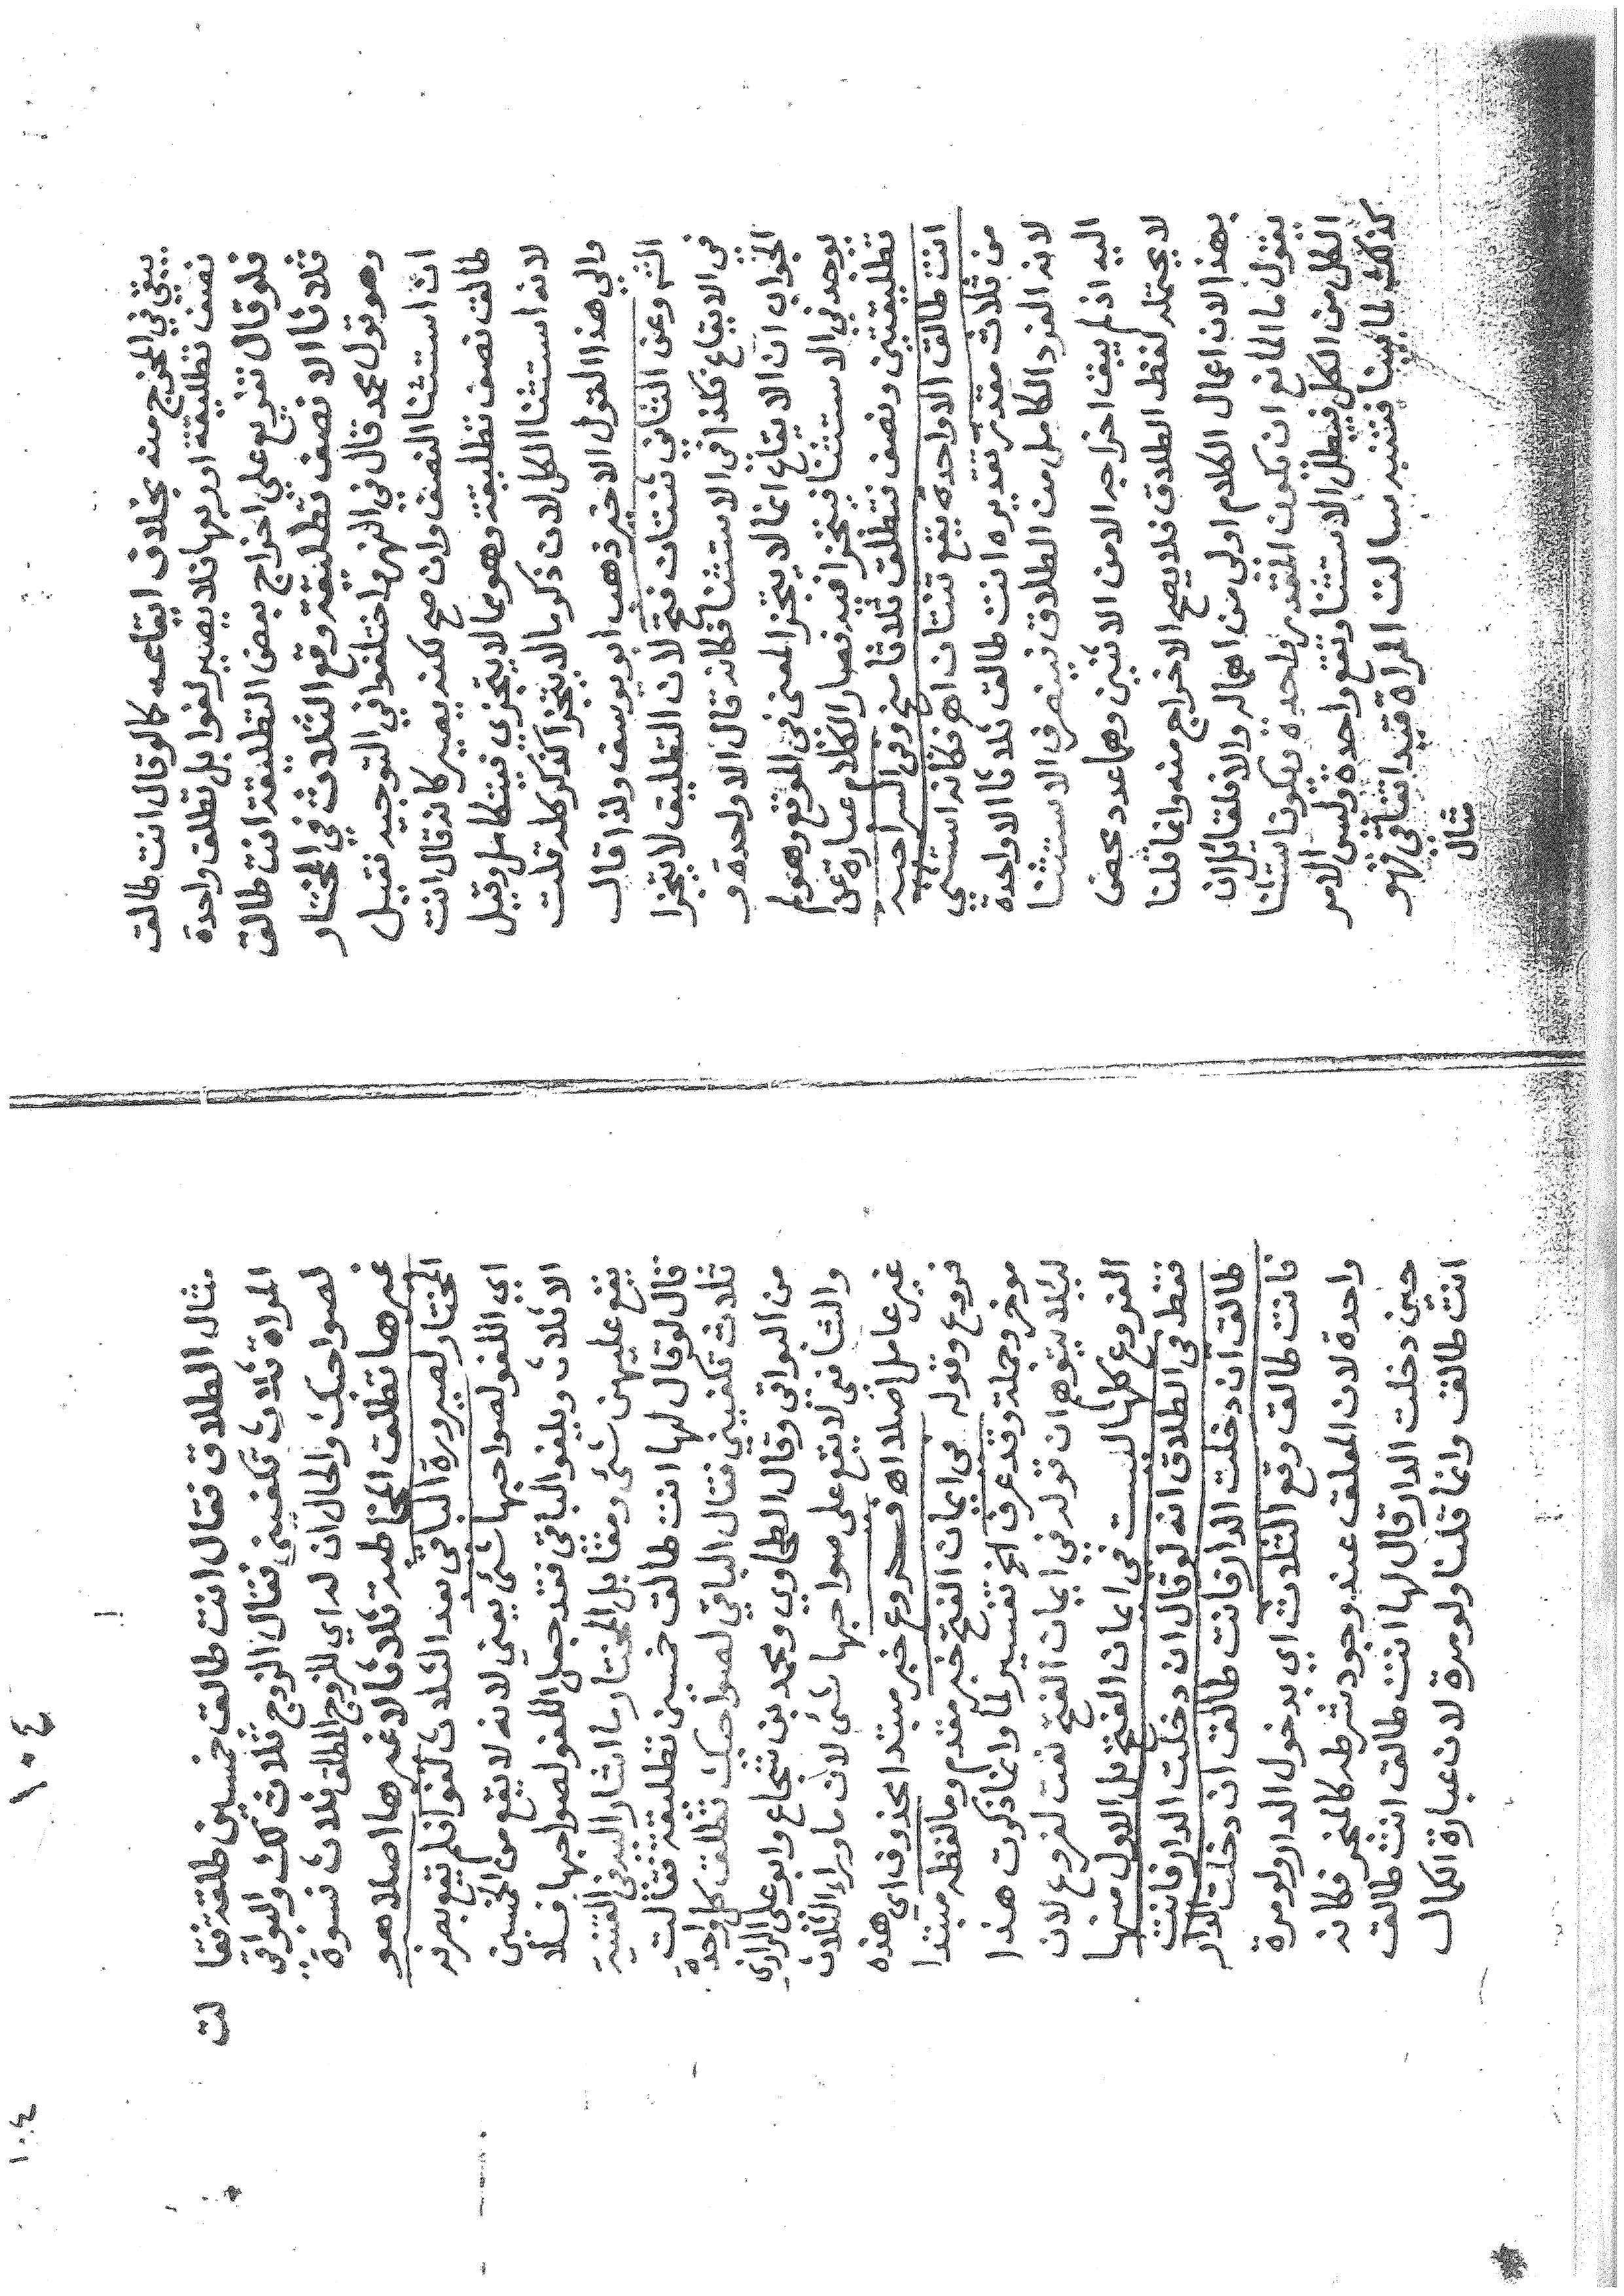 يبقي في المخرج منه بخلاف ايقاعه كالو قال انت طالق
نصف تطليقة او ربعها فلا يصير لغوا بل تطلق واحدة
فلو قال تفريع علي اخراج بعض التطليقة انت طالق
ثلاثا الا نصف تطليقة وقع الثلاث في المختار
وهو قول محمد قال في النهر واختلفوا في التوجيه فقيل
ان استثنا النصف وان صح لكنه يصير كانه قال انت
طالق نصف تطليقة وهو مما لا يتجزي فيتكامل وقيل
لانه استثنا الكل لان ذكر ما لا يتجزا كذكر كله قلت
والي هذا القول الاخير ذهب ابو يوسف ولذا قال
الثم وعن الثاني ثنتان فتح لان التطليق لا يتجزا
في الايقاع فكذا في الاستثنا فكانه قال الا واحدة و
الجواب ان الايقاع انما لا يتجزا لمعنى في الموقع وهو لم
يوجد في الاستثنا فيتجزا فيه فصار الكلام عبارة عن
تطليقتين ونصف فتطلق ثلاثا منح وفي السراجيه
انت طالق الا واحدة يقع ثنتان اهـ فكانه استثني
من ثلاث مقدر تقديره انت طالق ثلاثا الا واحدة
لانه الفرد الكامل من الطلاق فينصرف الاستثنا
اليه اذ لم يبق اخراجه الا من الاثنين وهما عدد محض
لا يحتمله لفظ الطلاق فلا يصح الاخراج منه وانما قلنا
بهذا لان اعمال الكلام اولي من اهماله والا فلقائل ان
يقول ما المانع ان تكون المقدر واحدة ويكون استثنا
الكل من الكل فيبطل الاستثنا وتقع واحدة وليس الامر
كذلك لما بينا فتنبه سالت المراة قيد اتفاقي فهو
مثال
١٠٤
١٠٤
مثال الطلاق فقال انت طالق خمسين طلقة فقا
لت
المراة ثلاث تكفيني فقال الزوج ثلاث لك والبواقي
لصواحبك والحال ان له اي للزوج المطلق ثلاث نسوة
غيرها تطلق المخاطبة ثلاثا لا غيرها اصلا هو
المختار لصيرورة الباقي بعد الثلاث لغوا فلم يقع بصرفه
اي اللغو لصواحبها شئ يعني لانه لا يقع من الخمسين
الا ثلاث ويلغو الباقي فقد جعل اللغو لصواحبها فلا
يقع عليهن شئ ومقابل المختار ما اشار اليه في القنية
قال لو قال لها انت طالق خمسين تطليقة فقالت
ثلاث تكفيني فقال الباقي لصواحبك تطلق كل واحدة
من البواقي وقال الطحاوي ومحمد بن شجاع وابو علي الرازي
والشافعي لا يقع على صواحبها شئ لان ما وراء الثلاث
غير عامل اصلا اهـ فــروع خبر مبتدا محذوف اي هذه
فروع وقوله في ايمان الفتح خبر مقدم وما لفظه مبتدا
موخر وجملة وقد عرف الخ تفسير لما وانما ذكرت هذا
ليلا يتوهم ان قوله في ايمان الفتح نعت لفروع لان
الفروع كلها ليست في ايمان الفتح بل الاول منها
فقط في الطلاق انه لو قال ان دخلت الدار فانت
طالق ان دخلت الدار فانت طالق ان دخلت الدار
فانت طالق وقع الثلاث اي بدخول الدار ولو مرة
واحدة لان المعلق عند وجود شرطه كالمنجز فكانه
حين دخلت الدار قال لها انت طالق انت طالق
انت طالق وانما قلنا ولو مرة لان عبارة الكمال